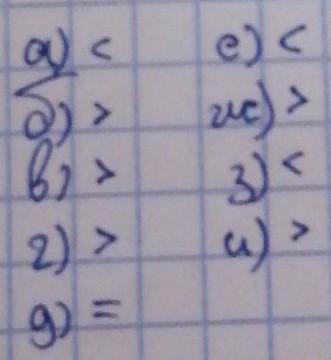 а) <
б) >
в) >
г) >
д) =
е) <
ж) >
з) <
и) >